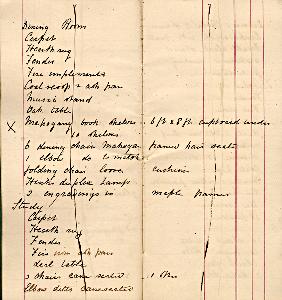 Dining Room
Carpet
Hearth rug
Fender
Fire implements
Coal scoop & ash pan
Music stand
Oak table
X Mahogany book shelves 6 ft x 8 ft cupboard under
10 shelves
6 dining chairs Mahogy frames hair seats
2 elbow do to match
folding chair loose cushions
2 engravings in maple frames
Study
Carpet
Hearth rug
Fender
Fire iron ash pan
Deal table
3 chairs cane seated
Elbow ditto cane seated